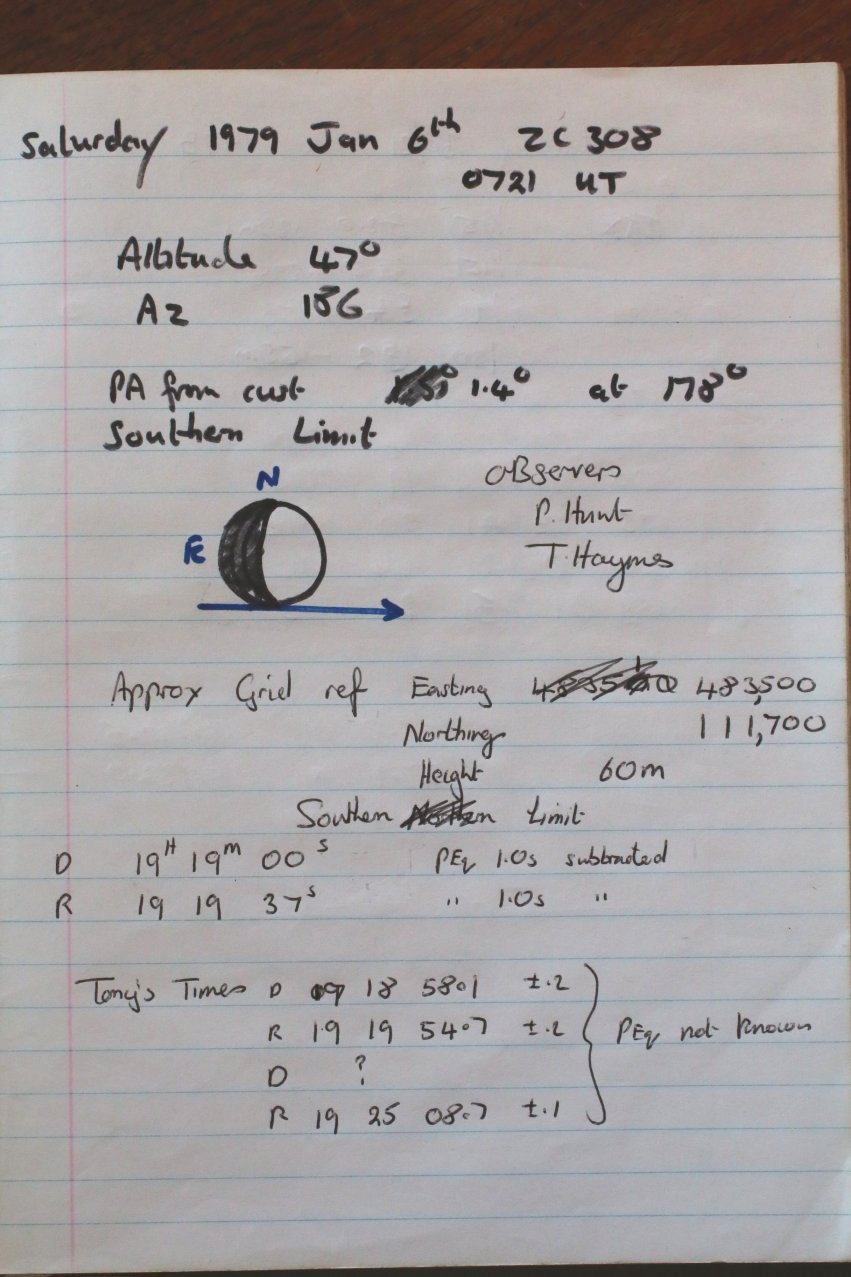 Saturday 1979 Jan 6th ZC 308
0721 UT
Altitude 47°
Az 186
PA from cust 1.4° at 178°
Southern Limit
N
Observers
P. Hunt
E
T. Haymes
Approx Grid ref Easting 483,500
Northing 111,700
Height 60m
Southern Limit
D 19H 19m 00s PEq 1.0s subtracted
R 19 19 37s " 1.0s "
Tony's Times D 18 58.1 ±.2
R 19 19 54.7 ±.2
PEq not known
D ?
R 19 25 08.7 ±.1